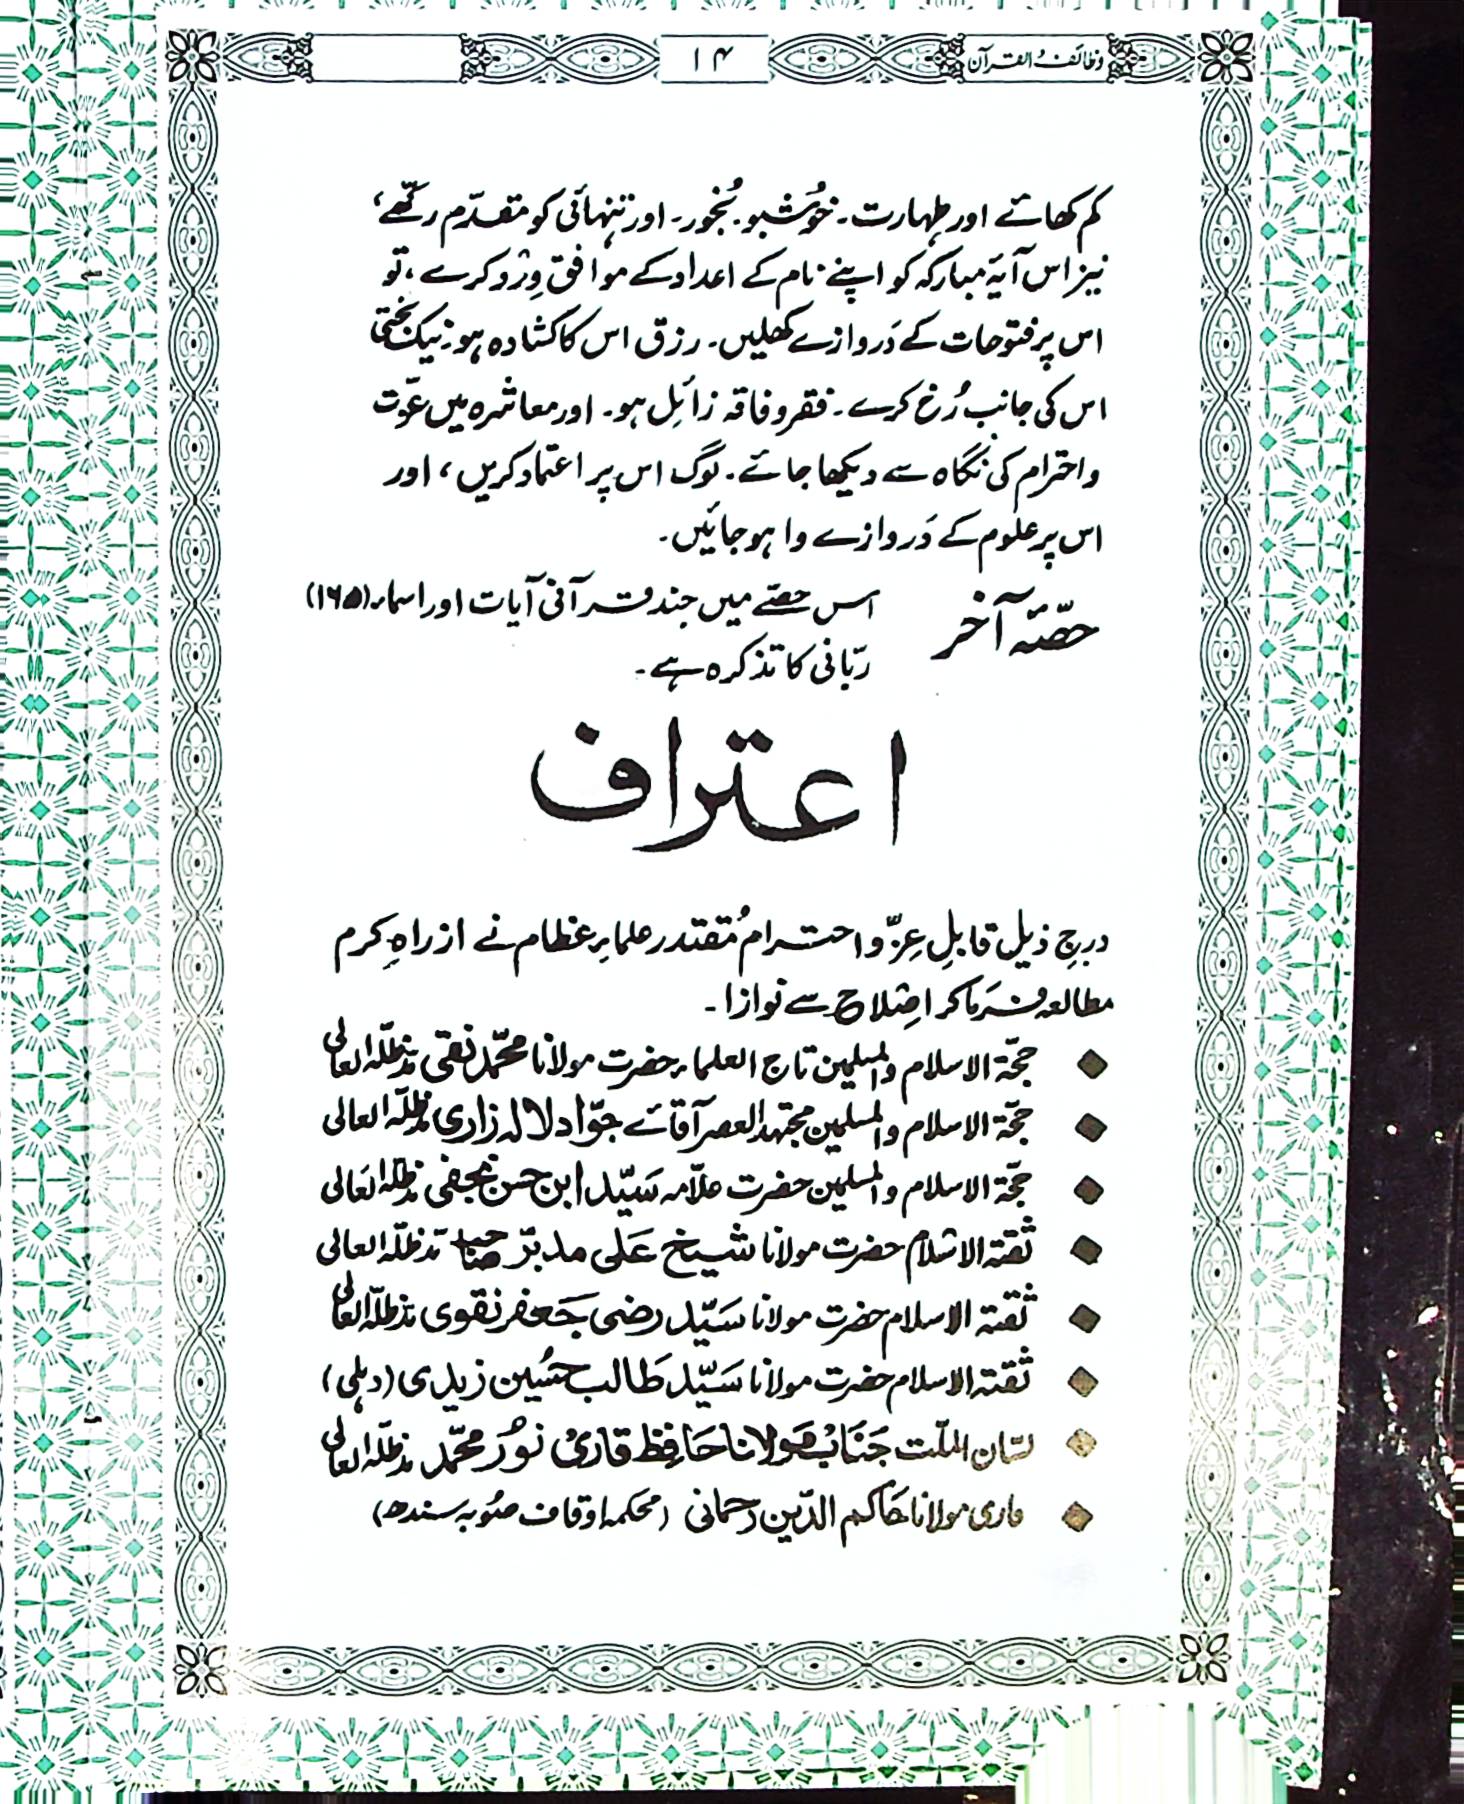 وظائف القرآن
۱۴
کم کھائے اور طہارت۔ خوُشبو۔ بُخور۔ اور تنہائی کو متقدّم رکھّے،
نیز اس آیۂ مبارکہ کو اپنے نام کے اعداد کے موافق وِرْد کرے، تو
اس پر فتوحات کے دَروازے کھلیں۔ رزق اس کا کشادہ ہو۔ نیک بختی
اس کی جانب رُخ کرے۔ فقر و فاقہ زائل ہو۔ اور معاشرہ میں عزّت
و احترام کی نگاہ سے دیکھا جائے۔ لوگ اس پر اعتماد کریں، اور
اس پر علوم کے دَروازے وا ہو جائیں۔
حصّۂ آخر
اس حصّے میں چند قرآنی آیات اور اسماء (۱۶۵)
ربّانی کا تذکرہ ہے۔
اعتراف
درجِ ذیل قابلِ عِزّ و احترام مُقتدر علماءِ عظام نے از راہِ کرم
مطالعہ فرَما کر اصِْلاح سے نوازا۔
حجّۃ الاسلام والمسلمین تاج العلماء حضرت مولانا محمّد نقی مدّظلّہ العالی
حجّۃ الاسلام والمسلمین مجتہد العصر آقائے جوّاد لالہ زاری مدّظلّہ العالی
حجّۃ الاسلام والمسلمین حضرت علاّمہ سَیّد ابن حسن نجفی مدّظلّہ العَالی
ثقتہ الاسْلام حضرت مولانا شیخ عَلی مدبرّ صاحب مدّظلّہ العالی
ثقتہ الاسلام حضرت مولانا سَیّد رضی جَعفر نقوی مدّظلّہ العالی
ثقتہ الاسلام حضرت مولانا سَیّد طَالب حسُین زیدی (دہلی)
لسّان الملّت جَنَابْ مَولانا حَافِظ قاریْ نورُ محمّد مدّظلّہ العالی
قاری مولانا حَاکم الدّین رحمانی (محکمہ اوقاف صوُبہ سندھ)